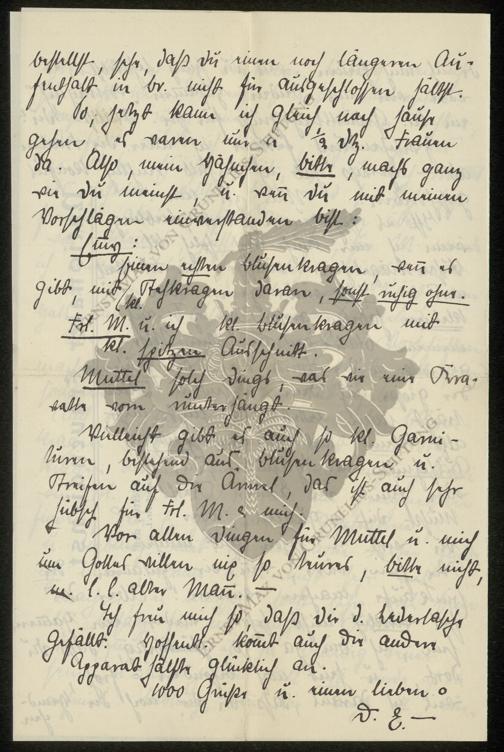 bestellst, sehe, daß Du einen noch längeren Au-
fenthalt in Br. nicht für ausgeschlossen hältst.
So, jetzt kann ich gleich nach Hause
gehen es waren nur ½ Dtz. Frauen
da. Also, mein Hähnchen, bitte, machs ganz
wie Du meinst, u. weñ Du mit meinen
Vorschlägen einverstanden bist:
einen echten Blusenkragen weñ es
gibt, mit kl. Stehkragen daran, sonst ruhig ohne.
Frl. M. u. ich kl. Blusenkragen mit
kl. spitzen Ausschnitt.
Muttel solch Dings, was wie eine Kra-
vatte vorn runterhängt.
Vielleicht gibt es auch so kl. Garni-
turen, bestehend aus Blusenkragen u.
Streifen auf die Ärmel, das ist auch sehr
hübsch für Frl. M. & mich.
Vor allen Dingen für Muttel u. mich
um Gottes willen nix so teures, bitte nicht,
l. l. alter Mañ. —
Ich freu mich so, daß Dir d. Ledertasche
gefällt. Hoffentl. kom̃t auch die andere
Apparathälfte glücklich an.
1000 Grüße u. einen lieben o
D. E. —